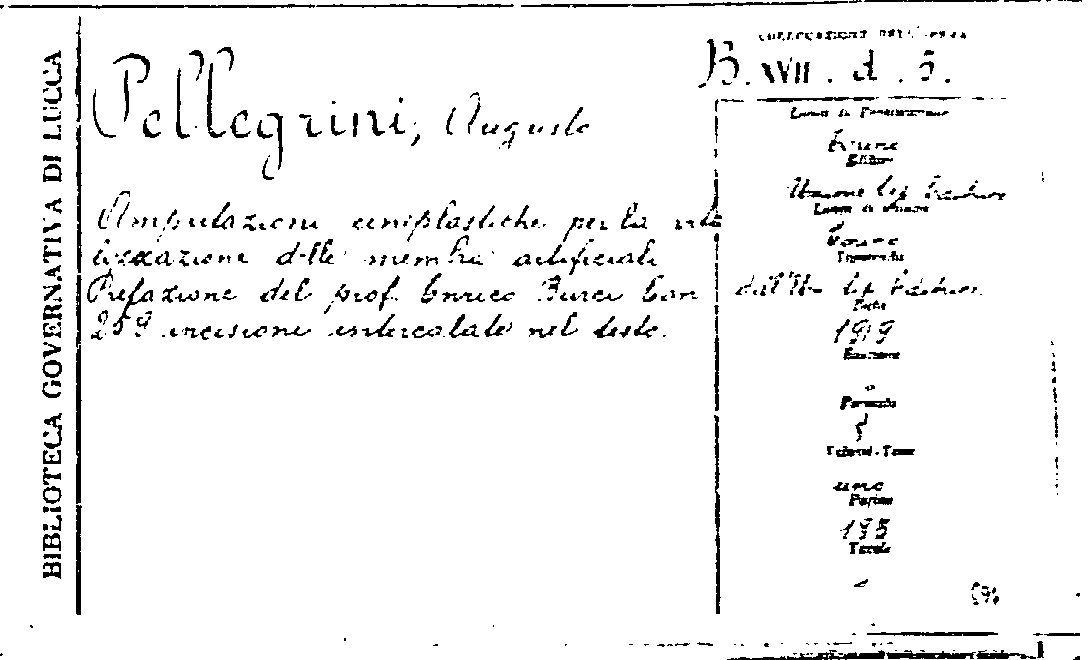 BIBLIOTECA GOVERNATIVA DI LUCCA
Pellegrini, Augusto
Amputazioni cineplastiche per la vita
lizzazione delle membra artificiali
Prefazione del prof. Enrico Burci Con
259 incisione intercalate nel testo.
COLLOCAZIONE DELL'OPERA
B. XVII. d. 5.
Luogo di Pubblicazione
Firenze
Editore
Unione Tip.
Luogo di stampa
Firenze
Tipografia
dall'Un Tip
Data
1919
Edizione
Formato
8
Volumi - Tomi
uno
Pagine
195
Tavole